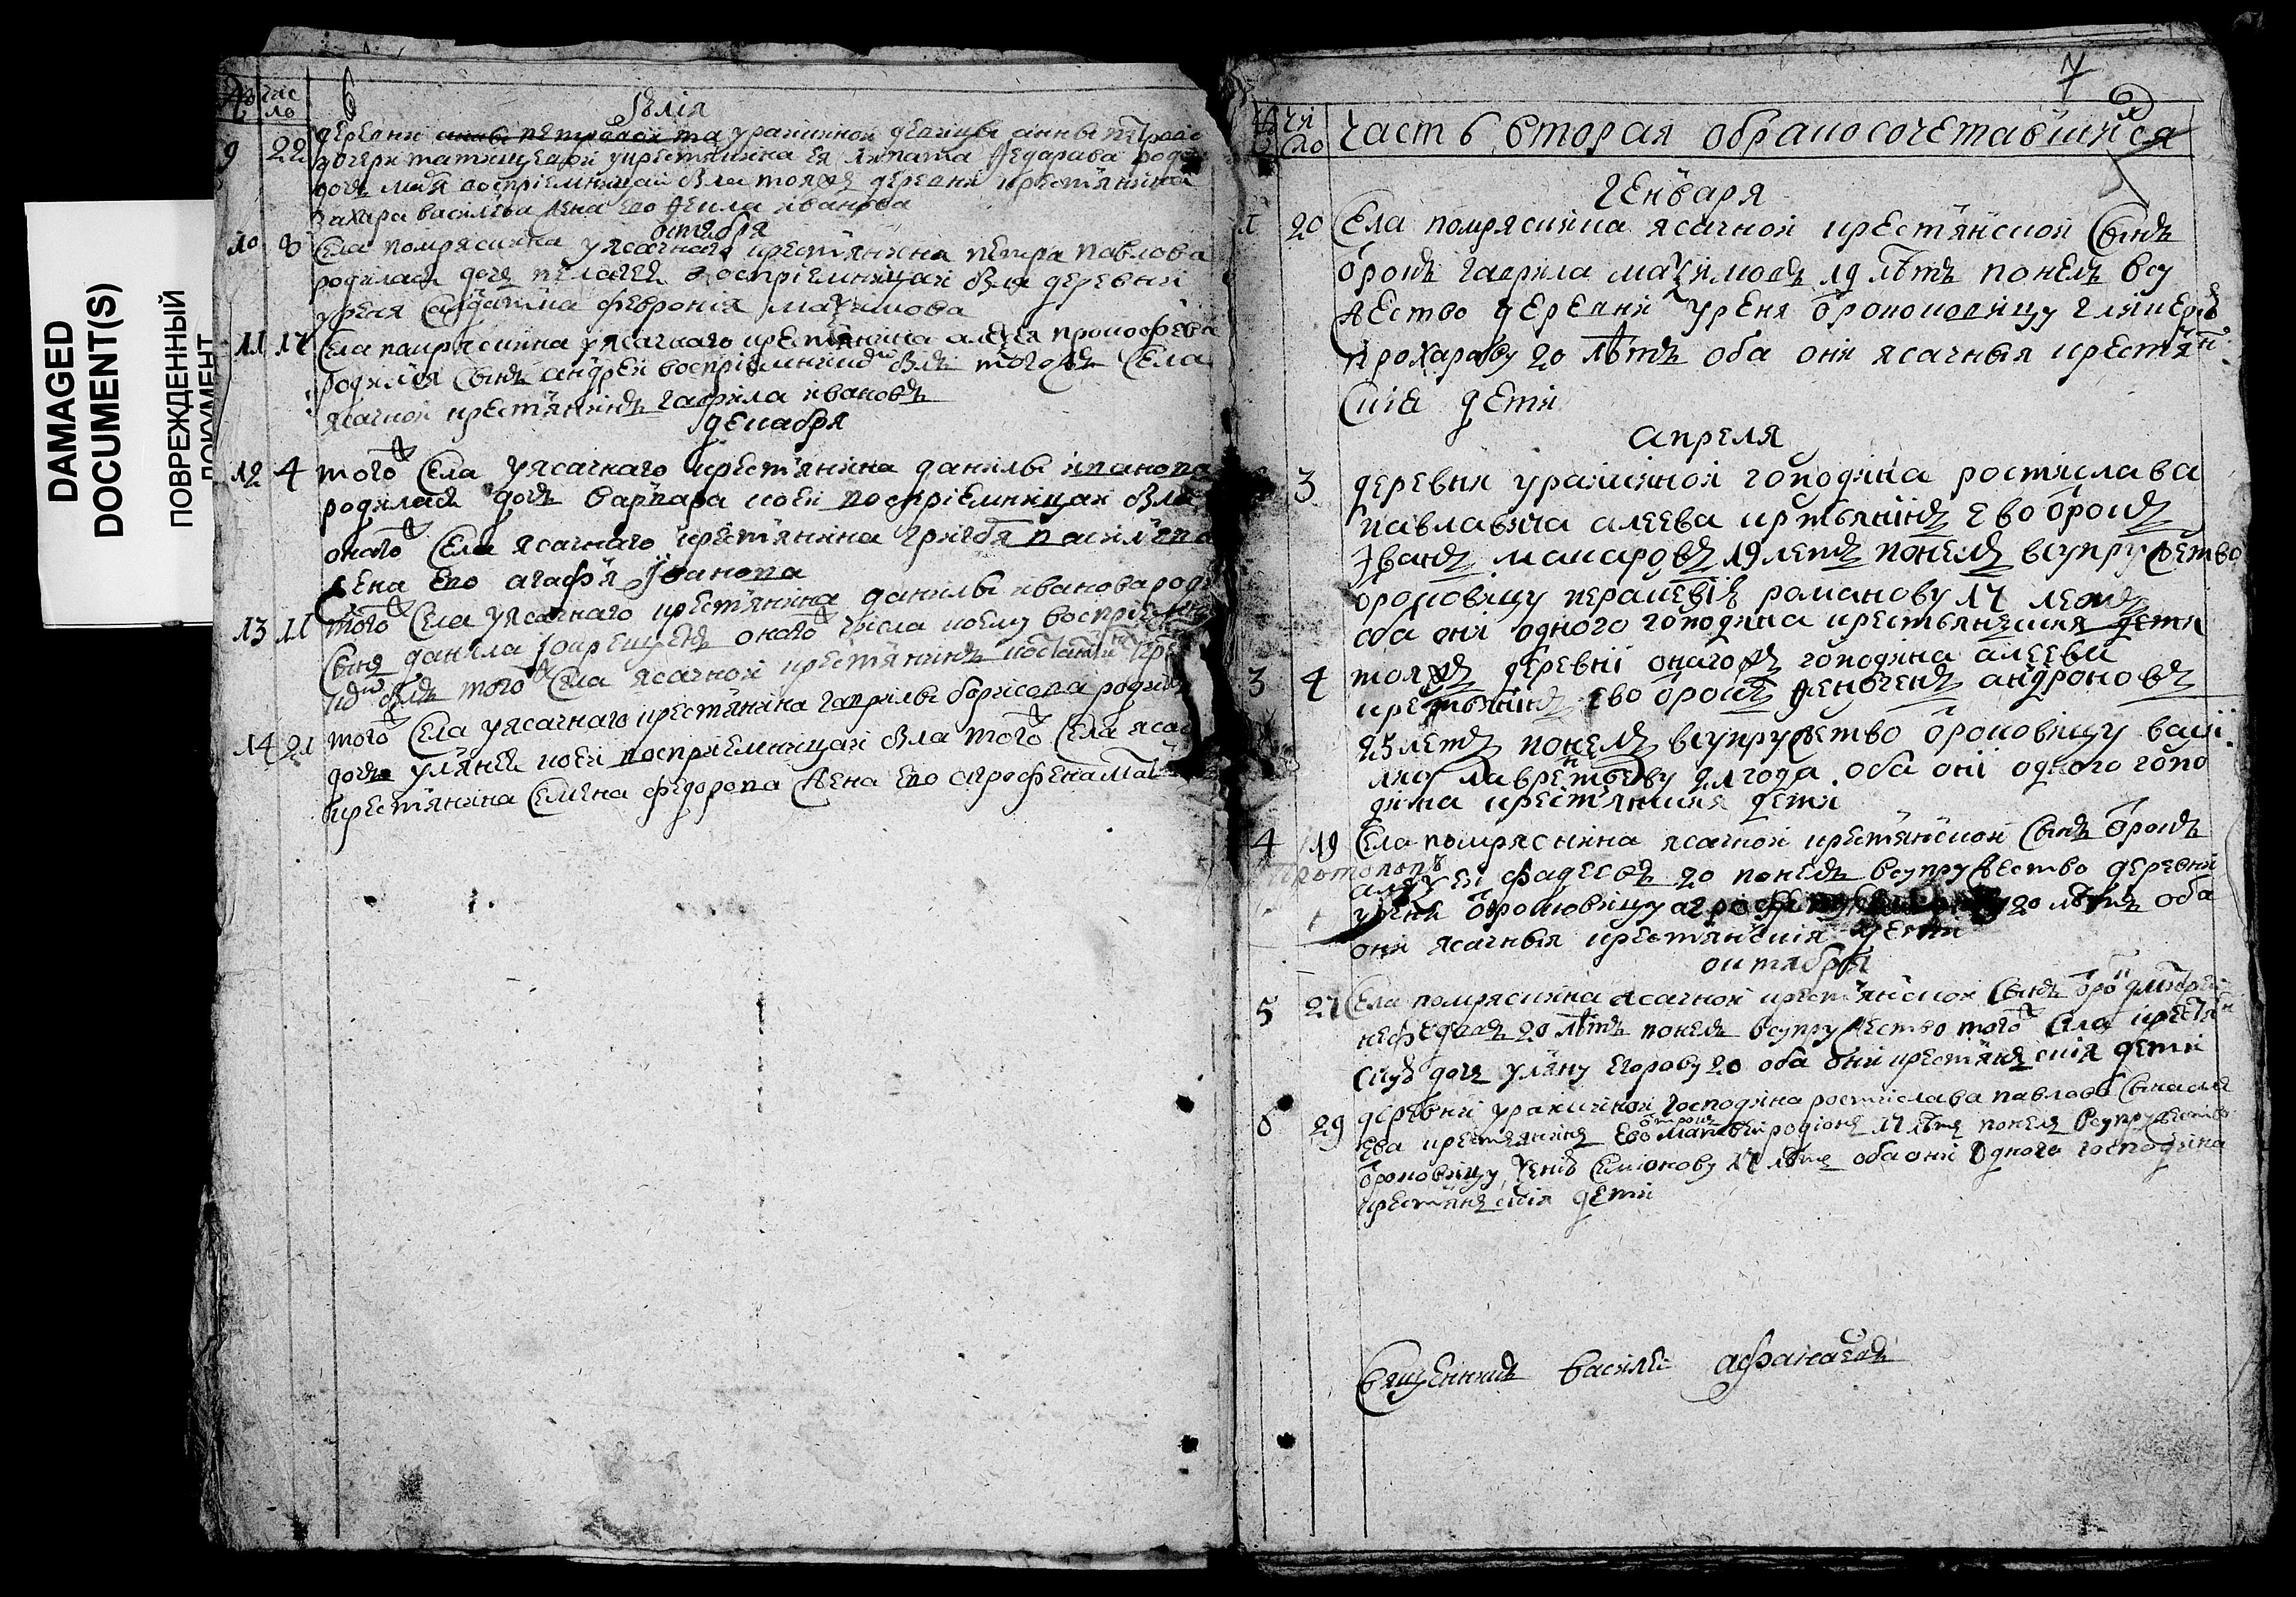 DAMAGED
DOCUMENT(S)
ПОВРЕЖДЕННЫЙ
ДОКУМЕНТ
чис
ло
6
Июлія
9 22 деревни урайкиной девицы анны петров
дочери татищевой укрестьянина ея Федарава роди
дочь восприемницаи была тояже деревни крестьянина
захара василева жена ево Фекла иванова
октября
10 8 Села помряскина уясачнаго крестьянина петра павлова
родилась дочь пелагея восприемницаи была деревни
уреня Салдатка феврония маѯимова
11 17 Села помряскина уясачнаго крестьянина алеѯея прокофьева
родился Сынъ андреи восприемникомъ былъ тогожъ Села
ясачнои крестьянинъ гаврила ивановъ
декабря
12 4 тогож Села уясачнаго крестьянина данилы иванова
родилась дочь варвара коеи восприемницаи была
оногож Села ясачнаго крестьянина григоря василева
жена ево агафя иванова
13 11 тогож Села уясачнаго крестьянина данилы иванова роди
Сынъ данила окрещенъ оногож числа коему восприемни
комъ былъ тогож Села ясачнои крестьянинъ
14 21 тогож Села уясачнаго крестьянина гаврилы борисова родила
дочь уляна коеи восприемницаи была тогож Села ясач
крестьянина Семена федорова жена ево агрофена
7
чи
сло
часть вторая обракосочетавшихся
генваря
1 20 Села помряскина ясачнои крестьянскои Сынъ
отрокъ гаврила маѯимовъ 19 лѣтъ понелъ всу
жество деревни уреня отроковицу гликерю
прохараву 20 лѣтъ оба они ясачныя крестьян
скіе дети
апреля
3 деревни урайкинои господина ростислава
павлавича алеева кретьянинъ ево отрокъ
Иванъ макаровъ 19 летъ понелъ всупружетво
отроковицу романову 17 летъ
оба они одного господина крестьянския дети
3 4 тояжъ деревни оногожъ господина алеева
кретьянинъ ево отрокъ андроновъ
25 летъ понелъ всупружетво отроковицу васи
лису лаврентьеву 21 года оба они одного госпо
дина крестьянския дети
4 19 Села помряскина ясачнои крестьянскои Сынъ отрокъ
протопопъ
алеѯеи фадеевъ 20 понелъ всупружество деревни
уреня отроковицу 20 лѣтъ оба
они ясачныя крестьянския дети
октября
5 27 Села помряскина ясачнои крестьянскои Сынъ
нефедовъ 20 лѣтъ понелъ всупружество тогож Села крестьян
скую дочь уляну егорову 20 оба они крестьянския дети
6 29 деревни урайкинои господина ростислава павлова Сына але
ева крестьянинъ ево отрокъ матвеи родіонъ 17 лѣтъ понелъ всупружество
отроковицу Симонову 17 лѣтъ оба они одного господина
крестьянския дети
Священникъ василеи афанасевъ